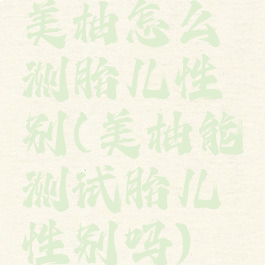 美柚怎么
测胎儿性
别(美柚能
测试胎儿
性别吗)